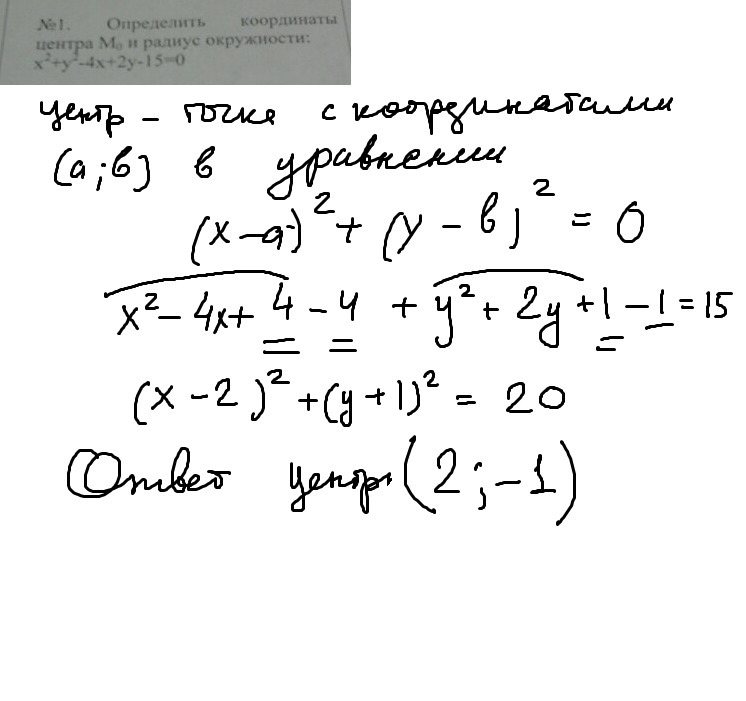 №1. Определить координаты
центра M₀ и радиус окружности:
x²+y²-4x+2y-15=0
центр – точка с координатами
(a;b) в уравнении
(x-a)² + (y-b)² = 0
x² - 4x + 4 - 4 + y² + 2y + 1 - 1 = 15
(x-2)² + (y+1)² = 20
Ответ центр (2;-1)